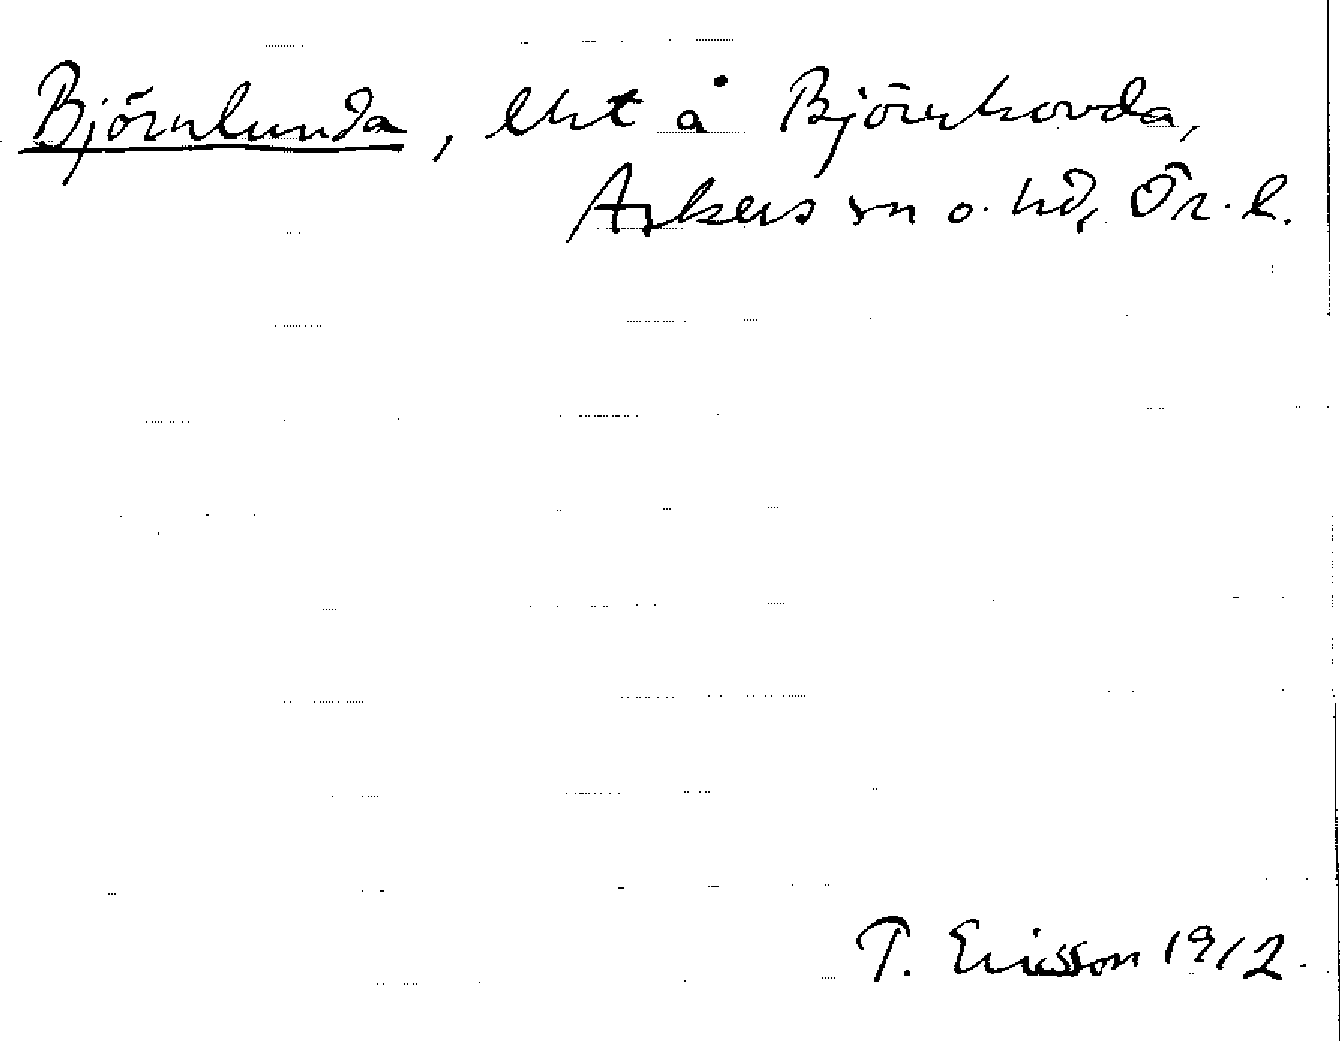 Björnlunda, lht å Björnhovda,
Askers sn o. hd, Ör. l.
T. Ericsson 1912.